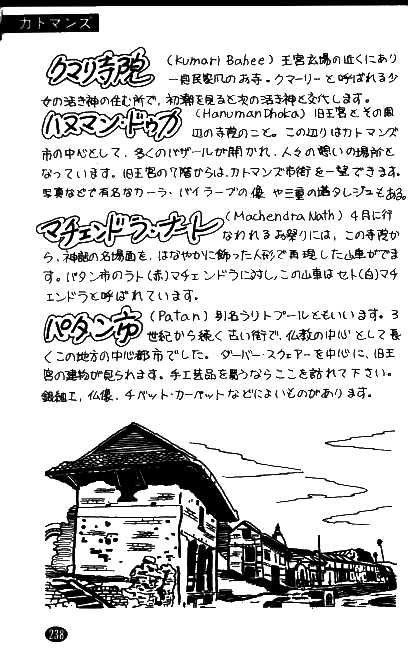 カトマンズ
クマリ寺院 (Kumari Bahee) 王宮広場の近くにあり
一見民家風のお寺。クマーリーと呼ばれる少
女の活き神の住む所で、初潮を見ると次の活き神と交代します。
ハヌマン・ドゥカ (Hanuman Dhoka) 旧王宮とその周
辺の寺院のこと。この辺りはカトマンズ
市の中心として、多くのバザールが開かれ、人々の憩いの場所と
なっています。旧王宮の7階からは、カトマンズ市街を一望できます。
写真などで有名なカーラ・バイラーブの像や三重の塔タレジュもある。
マチェンドラ・ナート (Machendra Nath) 4月に行
なわれるお祭りには、この寺院か
ら、神話の名場面を、はなやかに飾った人形で再現した山車がでま
す。パタン市のラト(赤)マチェンドラに対し、この山車はセト(白)マチ
ェンドラと呼ばれています。
パタン市 (Patan) 別名ラリトプールともいいます。3
世紀から続く古い街で、仏教の中心として長
くこの地方の中心都市でした。ダーバー・スクェアーを中心に、旧王
宮の建物が見られます。手工芸品を買うならここを訪れて下さい。
銀細工、仏像、チベット・カーペットなどによいものがあります。
238